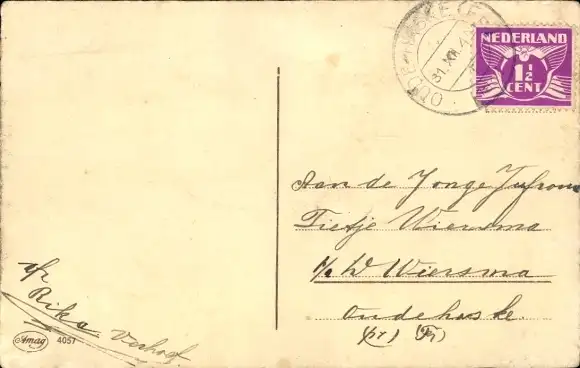 NEDERLAND
1½
CENT
31.XII.4
Aan de Jonge Jufrouw
Tietje Wiersma
p/a W Wiersma
Oudehaske
(pr) (Fr)
afz
Rika Verhoef.
Amag 4057